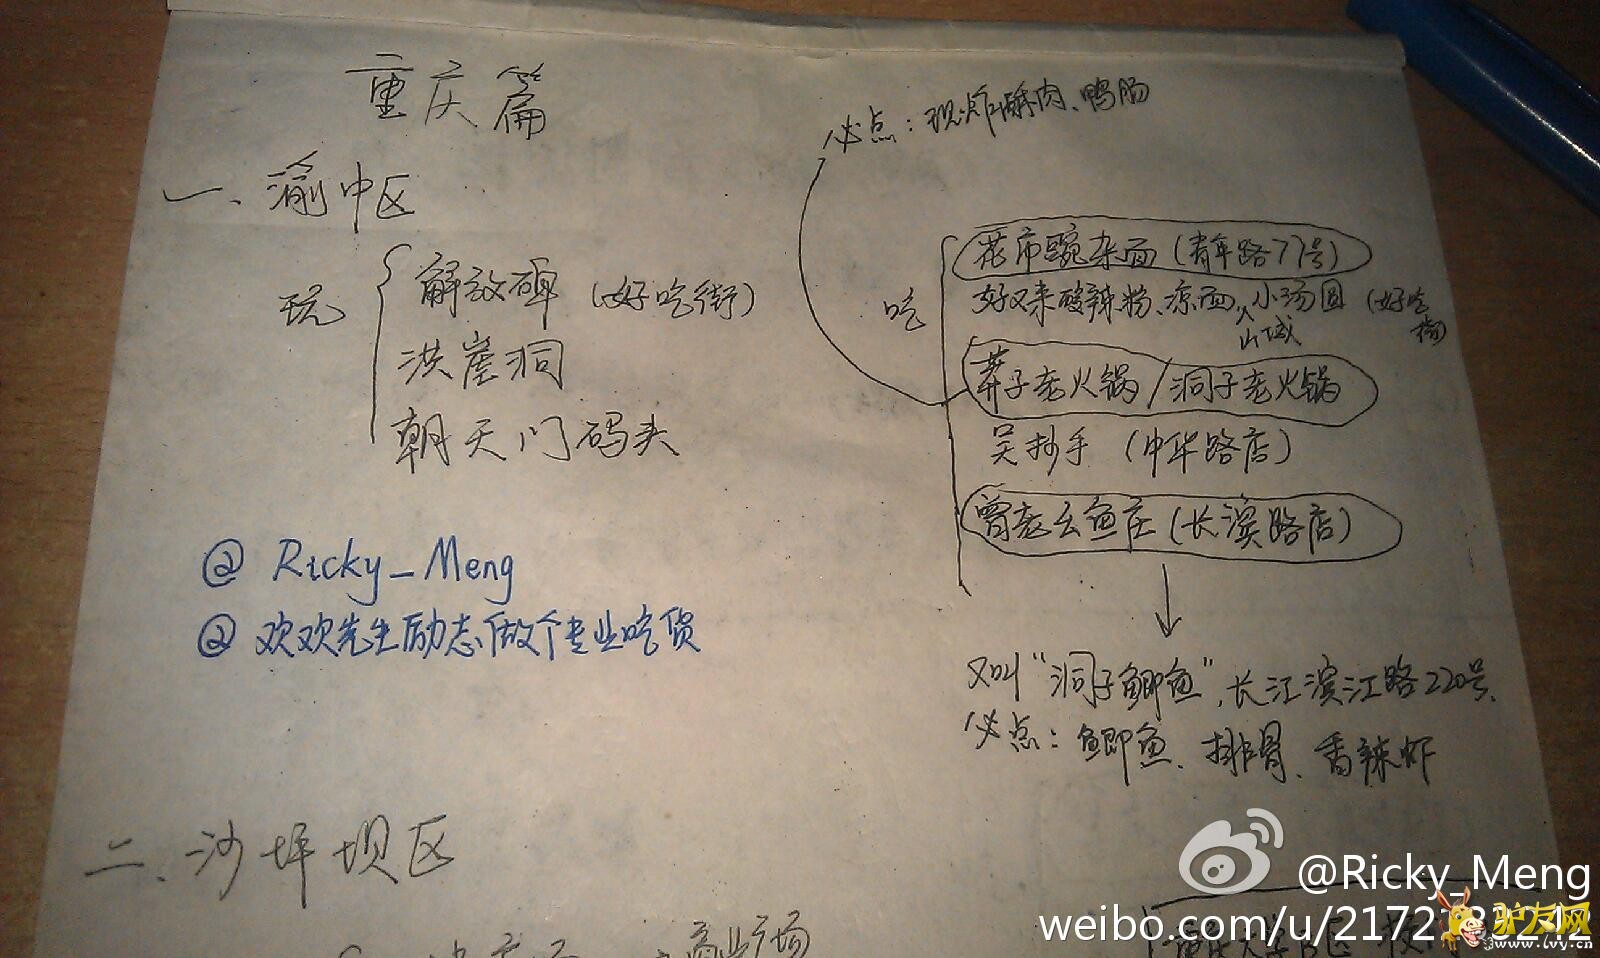 重庆篇
一、渝中区
玩
解放碑（好吃街）
洪崖洞
朝天门码头
@ Ricky_Meng
@ 欢欢先生励志做个专业吃货
必点：现炸酥肉、鸭肠
吃
花市豌杂面（青年路77号）
好又来酸辣粉、凉面、小汤圆（好吃街）
山城
莽子老火锅/洞子老火锅
吴抄手（中华路店）
曾老幺鱼庄（长滨路店）
又叫“洞子鲫鱼”，长江滨江路220号、
必点：鲫鱼、排骨、香辣虾
二、沙坪坝区
商业广场
@Ricky_Meng
weibo.com/u/2172
驴友网
www.lvy.cn